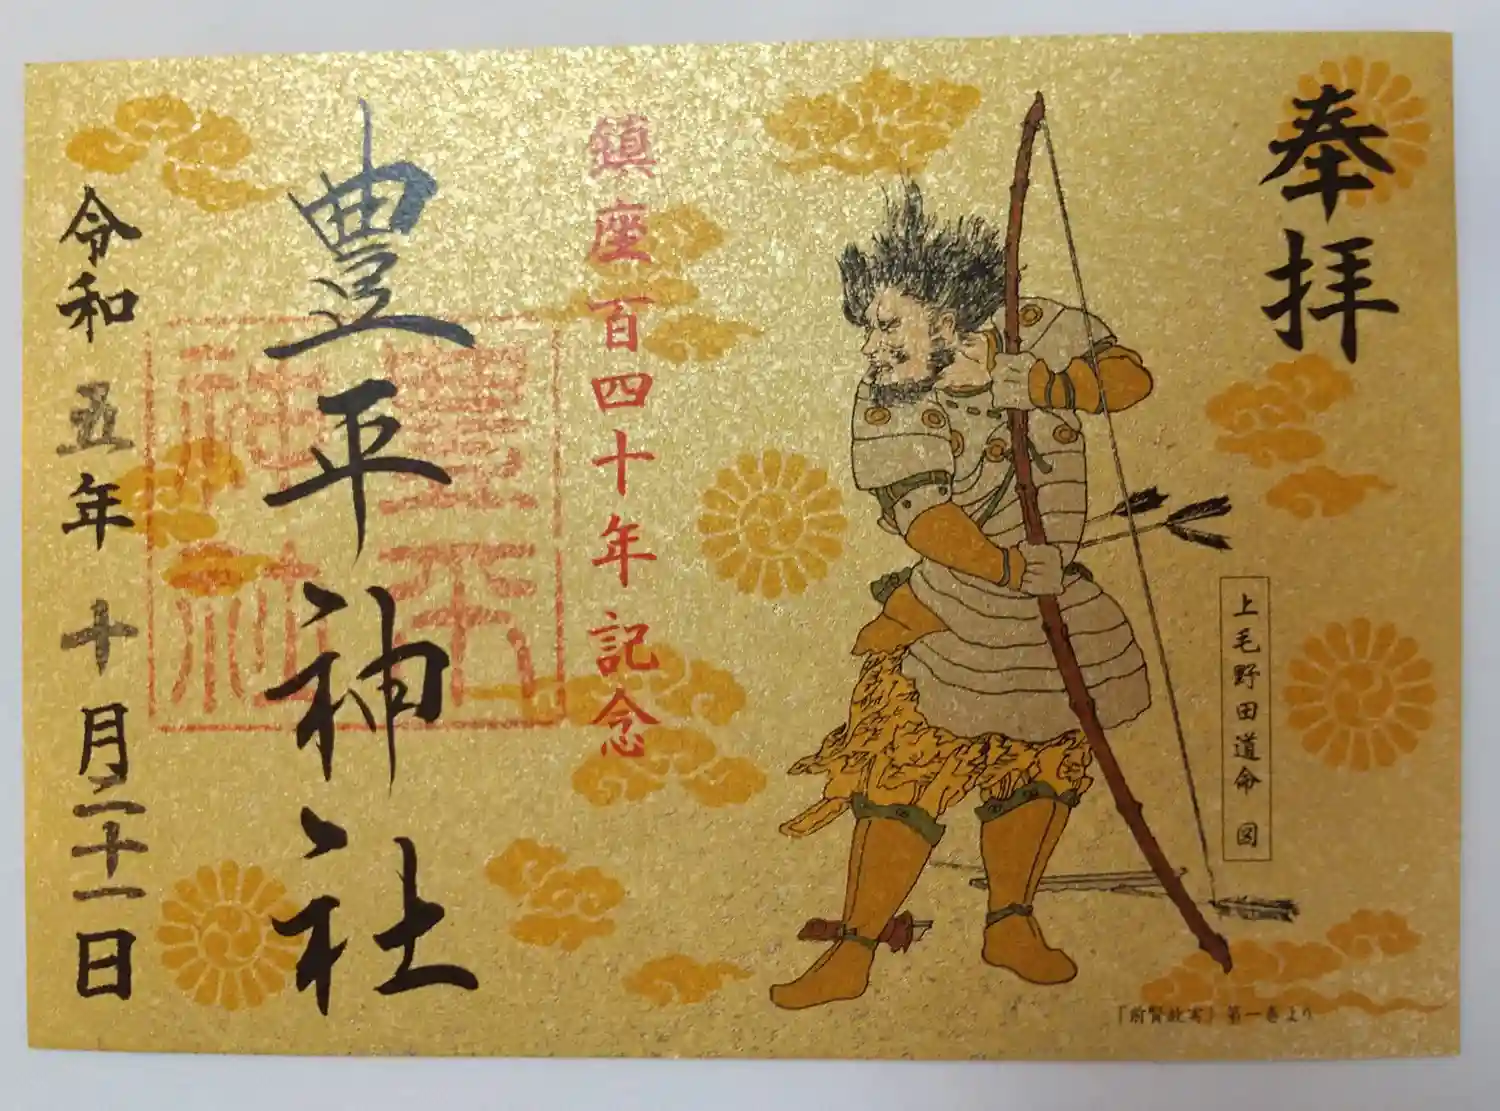 奉拝
上毛野田道命 図
『前賢故実』第一巻より
鎮座百四十年記念
豊平神社
豊平神社
令和五年十月二十一日